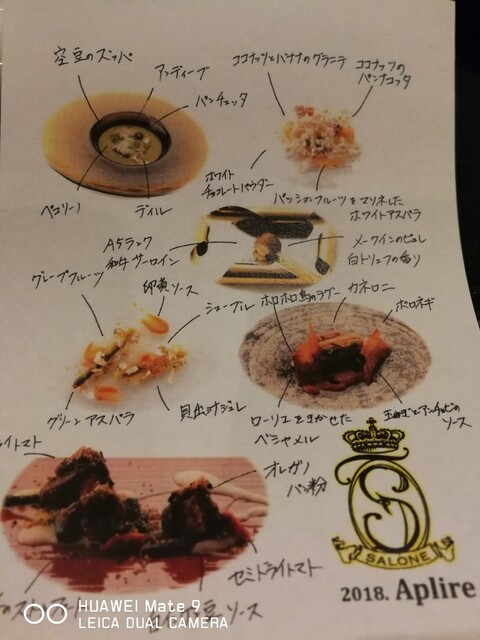 空豆のズッパ
アンディーブ
パンチェッタ
ペコリーノ
ディル
ココナッツとバナナのグラニテ
ココナッツの
パンナコッタ
ホワイト
チョコレートパウダー
パッションフルーツをマリネした
ホワイトアスパラ
A5ランク
和牛サーロイン
メークインのピュレ
白トリュフの香り
グレープフルーツ
卵黄ソース
シューブル
グリーンアスパラ
ホロホロ鳥のラグー
カネロニ
ポロネギ
ローリエをきかせた
ベシャメル
玉ねぎとアンチョビの
ソース
イトマト
オレガノ
パン粉
セミドライトマト
ソース
SALONE
2018. Aplire
HUAWEI Mate 9
LEICA DUAL CAMERA